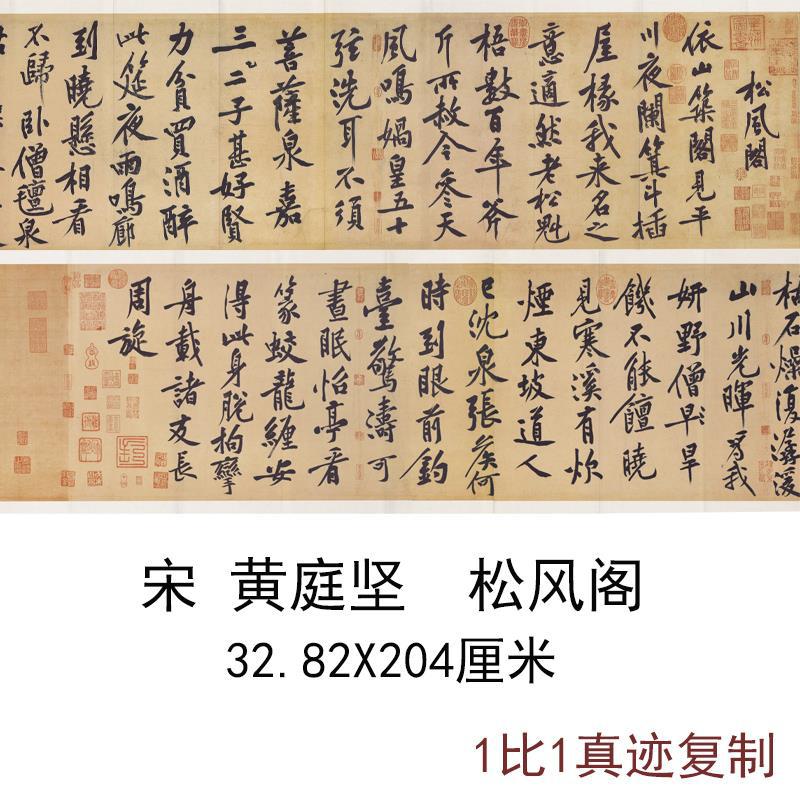 松風閣
依山築閣見平
川夜闌箕斗插
屋椽我来名之
意適然老松魁
梧數百年斧
斤所赦今參天
風鳴媧皇五十
弦洗耳不須
菩薩泉嘉
三二子甚好賢
力貧買酒醉
此筵夜雨鳴廊
到曉懸相看
不歸卧僧氊泉
枯石燥復潺湲
山川光暉為我
妍野僧早旱
饑不能饘曉
見寒溪有炊
煙東坡道人
已沈泉張侯何
時到眼前釣
臺驚濤可
晝眠怡亭看
篆蛟龍纏安
得此身脫拘攣
舟載諸友長
周旋
宋 黄庭坚 松风阁
32.82X204厘米
1比1真迹复制